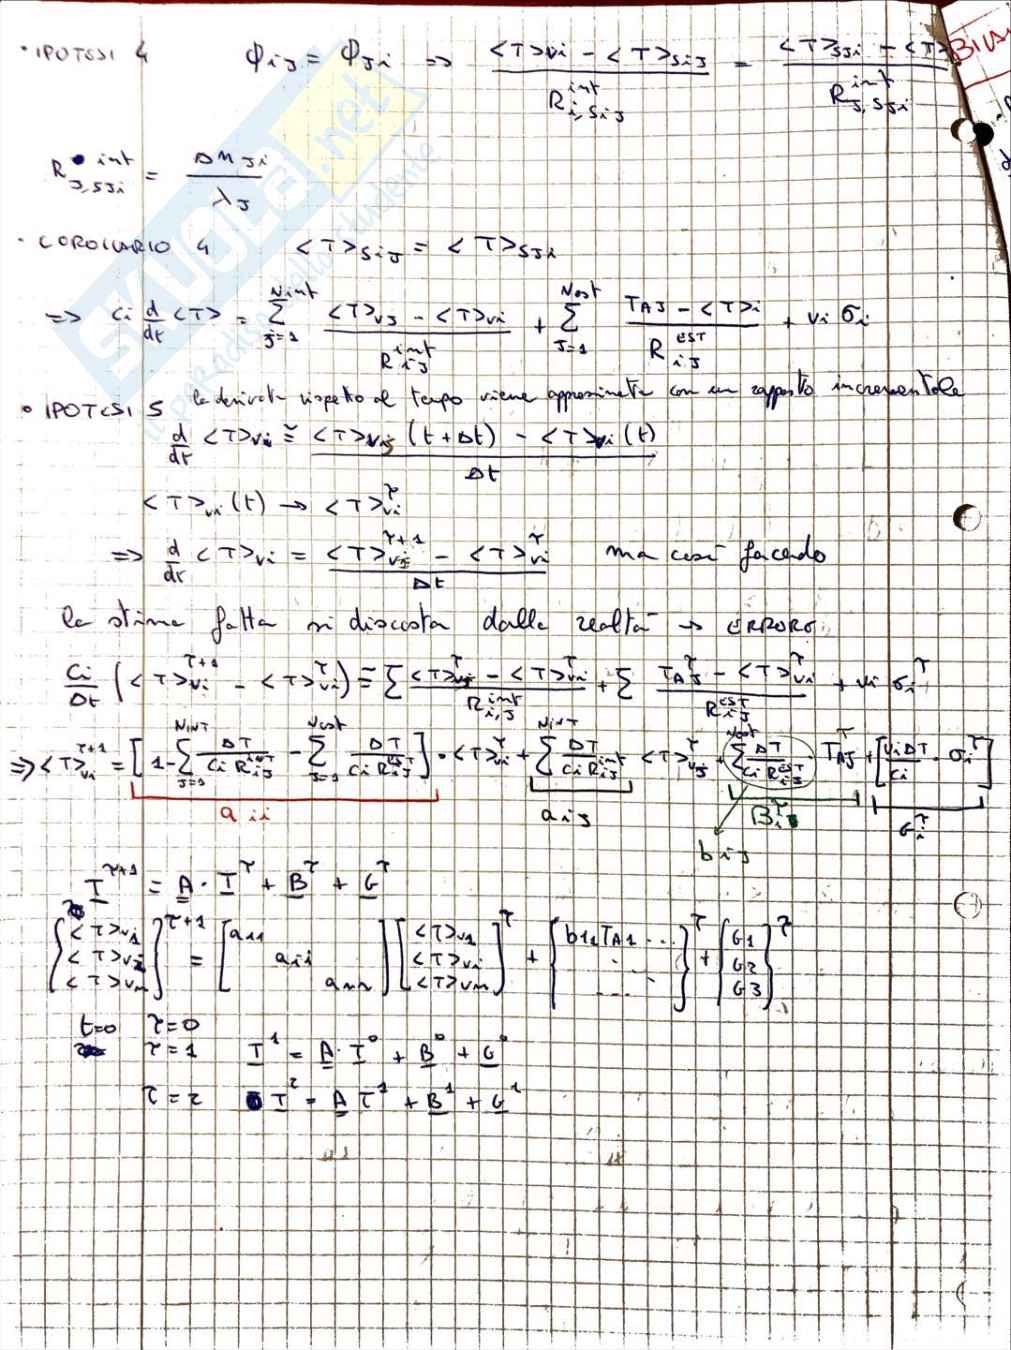 • IPOTESI 4 φij = φji => <T>vi - <T>sij / R int i,sij = <T>sji - <T> / R int j,sji
BILA
R int j,sji = Δnji / λj
• COROLLARIO 4 <T>sij = <T>sji
=> Ci d/dt <T> = Σ Nint j=1 <T>vj - <T>vi / R int ij + Σ Nest J=1 TAJ - <T>i / R EST ij + Vi σi
• IPOTESI 5 la derivata rispetto al tempo viene approssimata con un rapporto incrementale
d/dt <T>vi ≅ <T>vi (t+Δt) - <T>vi (t) / Δt
<T>vi (t) → <T>vi^τ
=> d/dt <T>vi = <T>vi^τ+1 - <T>vi^τ / Δt ma così facendo
la stima fatta si discosta dalla realtà → ERRORE
Ci/Δt (<T>vi^τ+1 - <T>vi^τ) = Σ <T>vj^τ - <T>vi^τ / R int i,j + Σ TAJ^τ - <T>vi^τ / R EST ij + Vi σi^τ
=> <T>vi^τ+1 = [1 - Σ NINT J=1 ΔT / Ci R int ij - Σ Nest J=1 ΔT / Ci R EST ij] · <T>vi^τ + [Σ NINT ΔT / Ci R int ij] <T>vj^τ + Σ Nest ΔT / Ci R EST ij · TAJ^τ + [Vi ΔT / Ci · σi^τ]
aii aij Bi^τ Gi^τ
bij
T^τ+1 = A · T^τ + B^τ + G^τ
{<T>v1 <T>vi <T>vn}^τ+1 = [a11 aii ann] [<T>v1 <T>vi <T>vn]^τ + {b11TA1 ...}^τ + {G1 G2 G3}^τ
t=0 τ=0
τ=1 T^1 = A · T^0 + B^0 + G^0
τ=2 T^2 = A T^1 + B^1 + G^1
SKUOLA.net
il paradiso dello studente